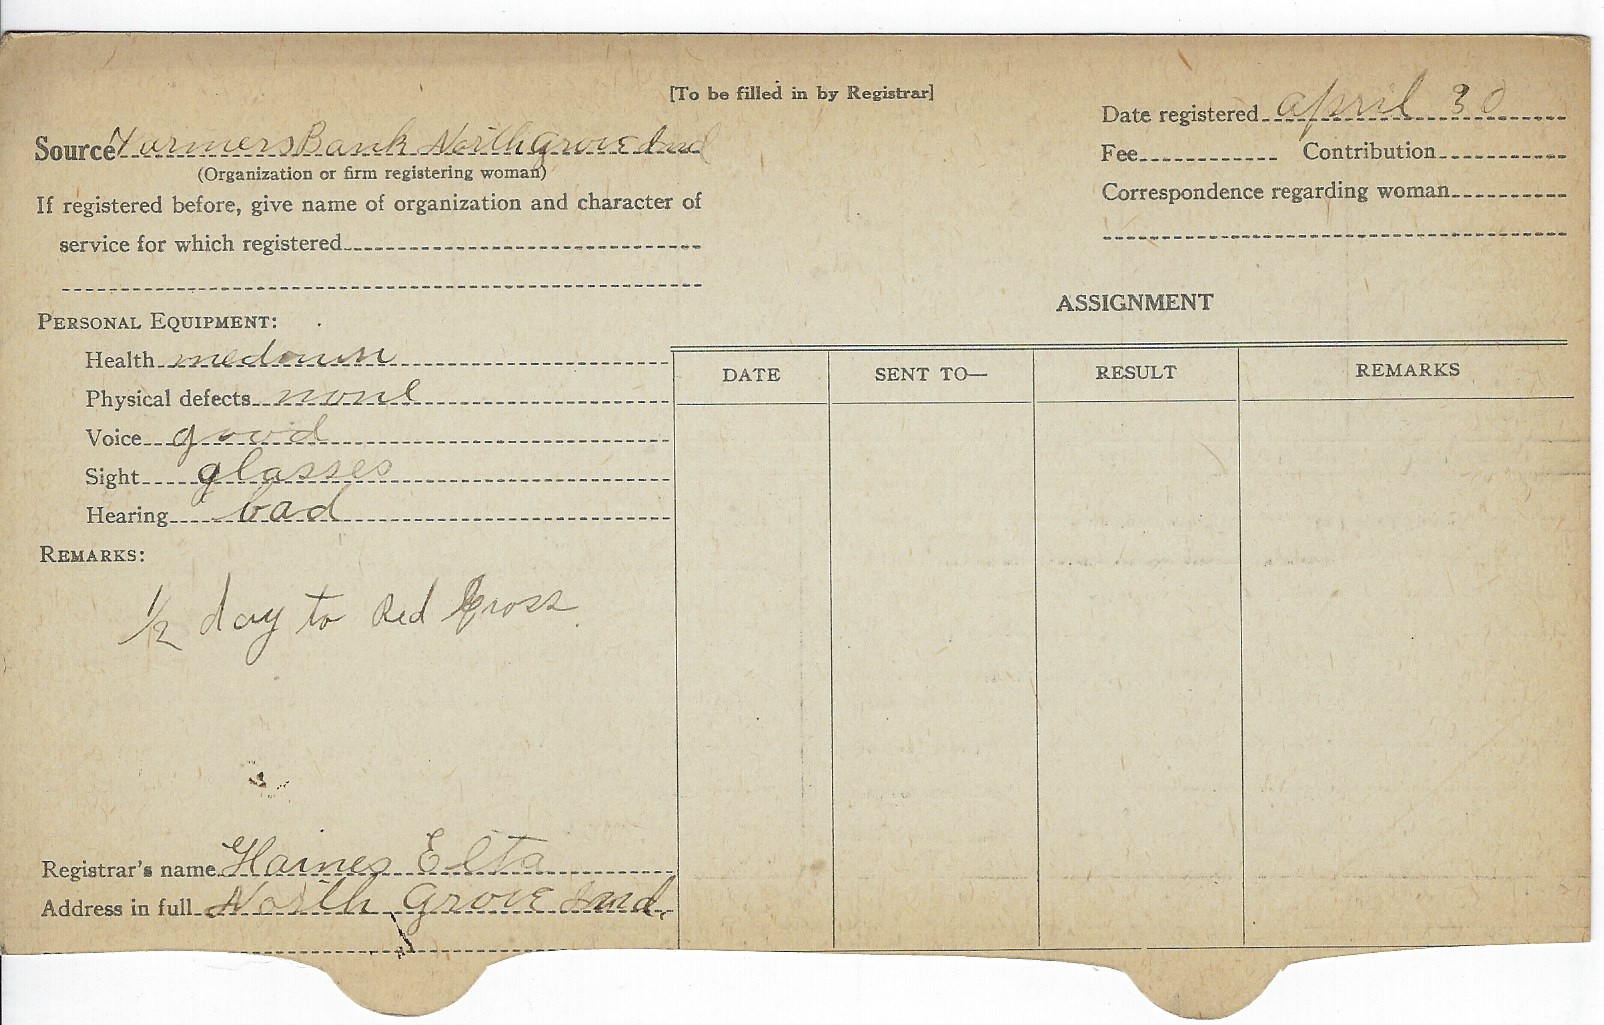 [To be filled in by Registrar]
Date registered april 30
Source Farmers Bank North Grove Ind
(Organization or firm registering woman)
Fee Contribution
If registered before, give name of organization and character of
Correspondence regarding woman
service for which registered
ASSIGNMENT
PERSONAL EQUIPMENT:
Health
Physical defects none
Voice good
Sight glasses
Hearing bad
DATE SENT TO— RESULT REMARKS
REMARKS:
1/2 day to Red Cross
Registrar's name Haines Elta
Address in full North Grove Ind.